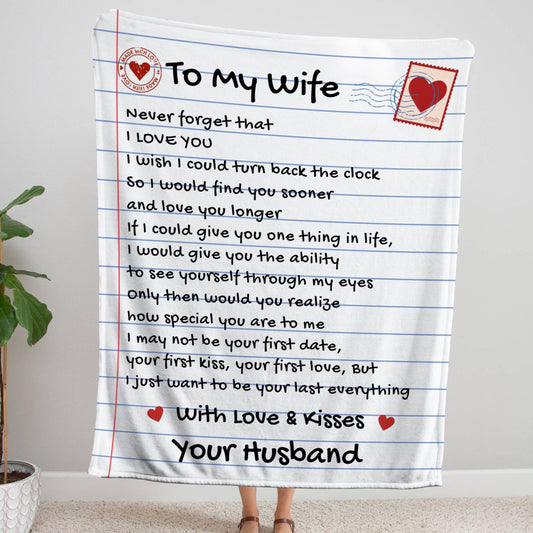 MADE WITH LOVE
MADE WITH LOVE
To My Wife
Never forget that
I LOVE YOU
I wish I could turn back the clock
So I would find you sooner
and love you longer
If I could give you one thing in life,
I would give you the ability
to see yourself through my eyes
Only then would you realize
how special you are to me
I may not be your first date,
your first kiss, your first love, But
I just want to be your last everything
With Love & Kisses
Your Husband